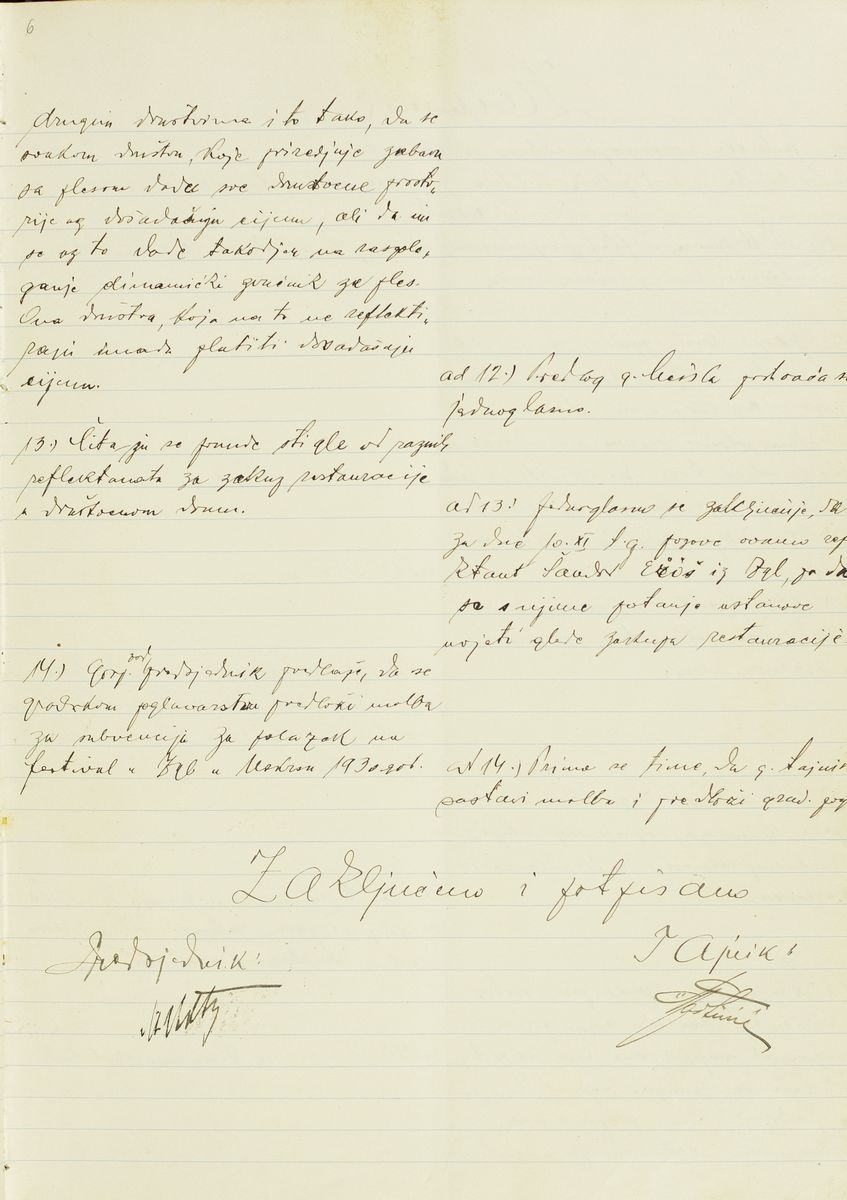 6
drugim društvima i to tako, da se
svakom društvu, koje priredjuje zabavu
sa plesom dade sve društvene prosto-
rije uz dosadašnju cijenu, ali da im
se uz to dade takodjer na raspola-
ganje dinamički zvučnik za ples.
Ona društva, koja na to ne reflekti-
raju imadu platiti dosadašnju
cijenu.
ad 12.) Predlog g. prihvaća se
jednoglasno.
13.) Čitaju se ponude stigle od raznih
reflektanata za zakup restauracije
u društvenom domu.
ad 13.) Jednoglasno se zaključuje, da
za dne 10. XI t.g. pozove ovamo refl
ktant Šandor Eröš iz Zgb, pa da
se s njime potanje ustanove
uvjeti glede zakupa restauracije.
14.) Gosp. pod predsjednik predlaže, da se
gradskom poglavarstvu predloži molba
za subvenciju za polazak na
festival u Zgb u Uskrsu 1930 god.
ad 14.) Prima se time, da g. tajnik
sastavi molbu i predloži grad. pog
Zaključeno i potpisano
Predsjednik:
Tajnik: